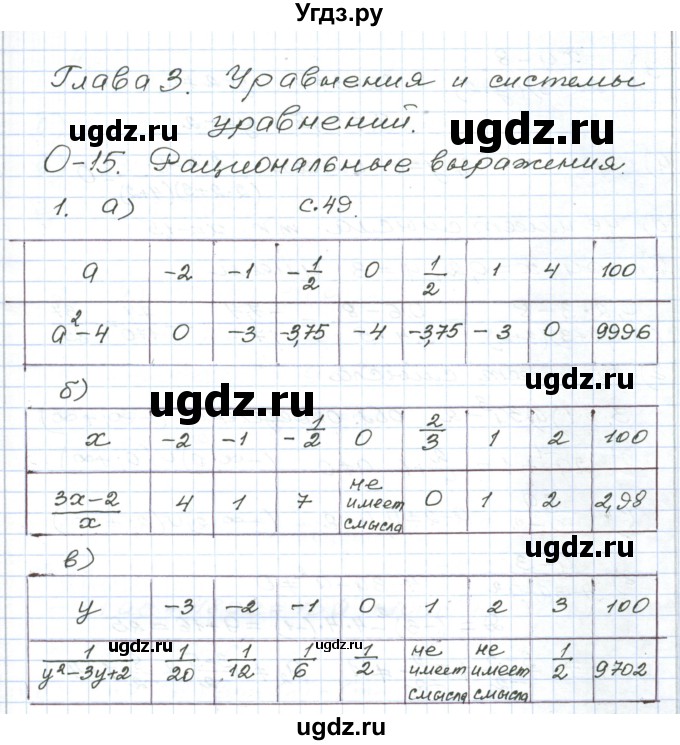 Угдз.ру
Глава 3. Уравнения и системы
уравнений.
ugdz.ru ugdz.ru
О-15. Рациональные выражения.
1. а) с.49.
a -2 -1 -1/2 0 1/2 1 4 100
a²-4 0 -3 -3,75 -4 -3,75 -3 0 9996
ugdz.ru
б) ugdz.ru
x -2 -1 -1/2 0 2/3 1 2 100
(3x-2)/x 4 1 7 не имеет смысла 0 1 2 2,98
ugdz.ru
в)
y -3 -2 -1 0 1 2 3 100
1/(y²-3y+2) 1/20 1/12 1/6 1/2 не имеет смысла не имеет смысла 1/2 9702
ugdz.ru ugdz.ru
ugdz.ru